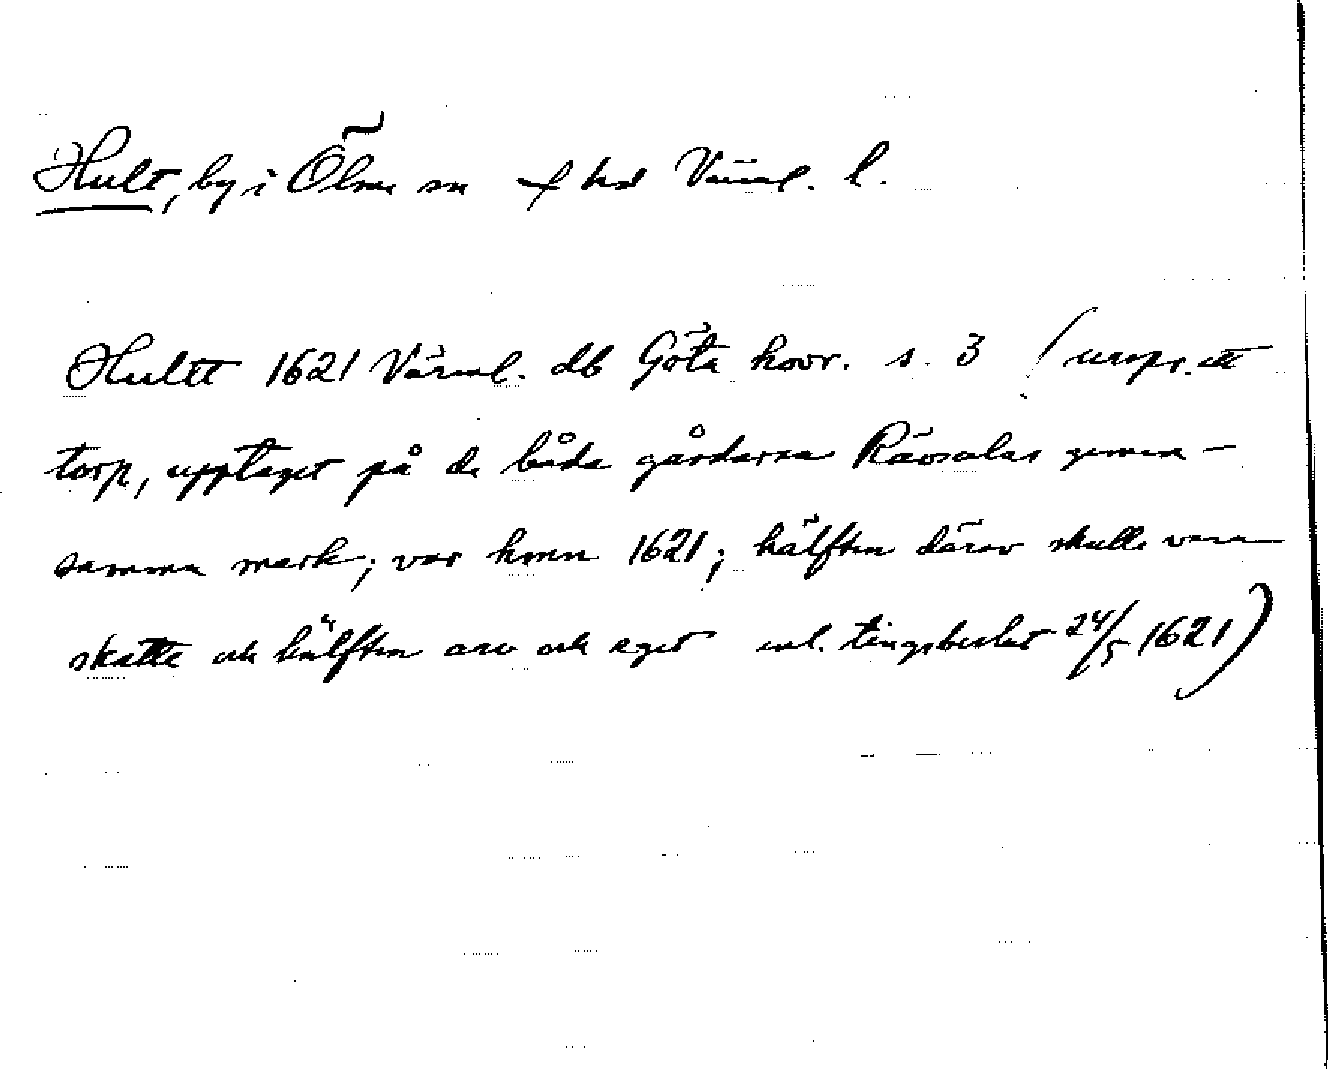 Hult, by i Ölme sn & hd Värml. l.
Hultt 1621 Värml. db Göta hovr. s. 3 (urspr. ett
torp, upptaget på de båda gårdarna Rävsalas gemen-
samma mark; var hmn 1621; hälften därav skulle vara
skatte och hälften arv och eget enl. tingsbeslut 24/5 1621)